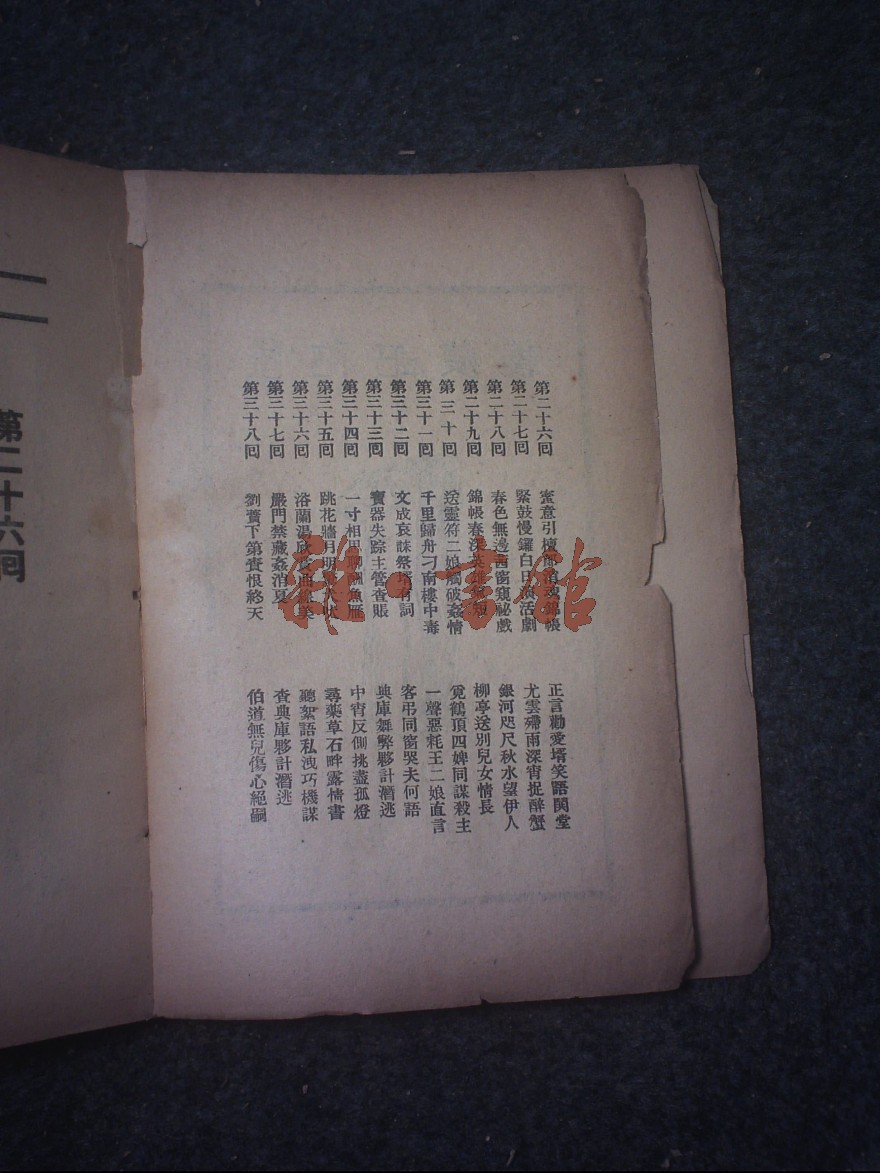 第二十六囘 蜜意引檀郎魂錦帳 正言勸愛壻笑語閧堂
第二十七囘 緊鼓慢鑼白日演活劇 尤雲殢雨深宵捉醉蟹
第二十八囘 春色無邊茜窗窺祕戲 銀河咫尺秋水望伊人
第二十九囘 錦帳春深英雄氣短 柳亭送別兒女情長
第三十囘 送靈符二娘觸破姦情 覓鶴頂四婢同謀殺主
第三十一囘 千里歸舟刁南樓中毒 一聲惡耗王二娘直言
第三十二囘 文成哀誄祭壻有詞 客弔同窗哭夫何語
第三十三囘 寶器失踪主管查賬 典庫舞弊夥計潛逃
第三十四囘 一寸相思魚雁 中宵反側挑盡孤燈
第三十五囘 跳花牆月明驚犬吠 尋藥草石畔露情書
第三十六囘 浴蘭湯欣賞曲線美 聽絮語私洩巧機謀
第三十七囘 嚴門禁藏姦消夏 查典庫夥計潛逃
第三十八囘 劉蕡下第賫恨終天 伯道無兒傷心絕嗣
第二十六囘
雜·書館